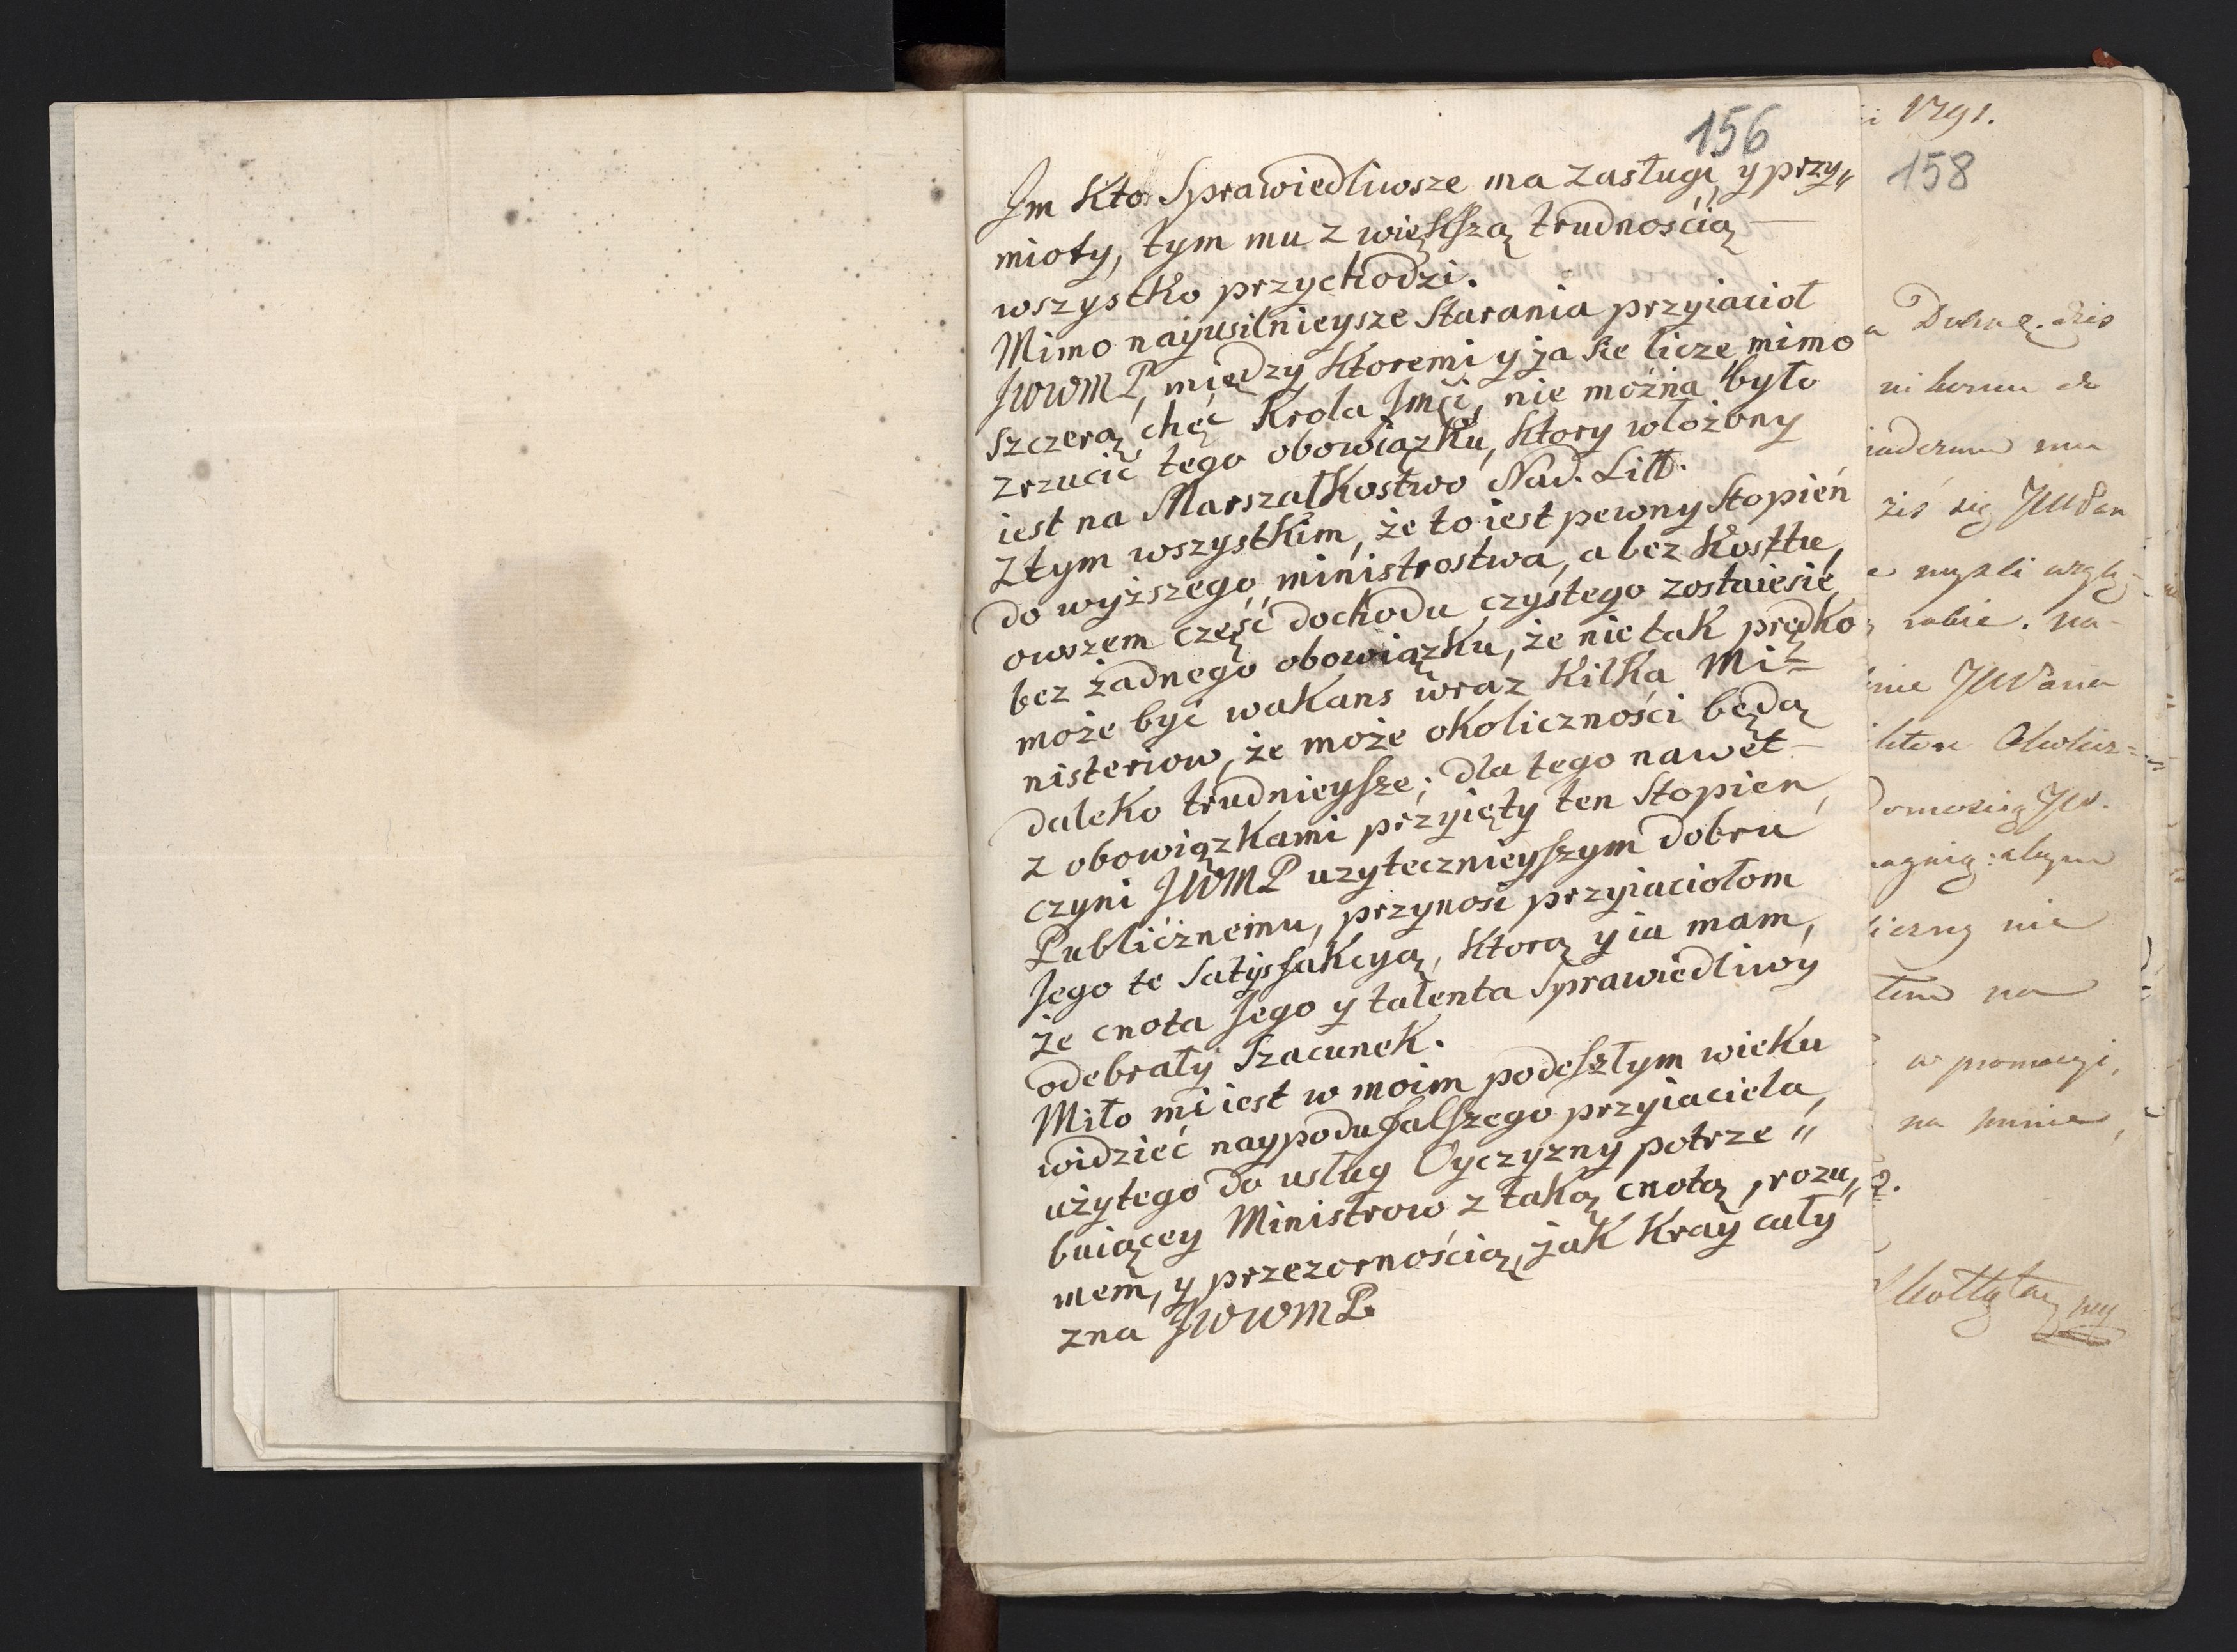 156
Im Kto Sprawiedliwsze ma Zasługi y przy„
mioty, tym mu z więkſzą trudnością
wszystko przychodzi.
Mimo nayusilnieysze Starania przyiacioł
JWWMP, między Ktoremi y ja sie licze, mimo
szczerą chęć Krola Jmci, nie można było
zrzucić tego obowiązku, Ktory włożony
iest na Marszałkostwo Nad. Litt.
Z tym wszystkim, że to iest pewny Stopień
do wyższego ministrostwa, a bez Kosztu,
owszem część dochodu czystego zostaie sie
bez żadnego obowiązku, że nie tak prędko
może być wakans wraz Kilka Mi=
nisteriow, że może okoliczności będą
daleko trudnieysze; dla tego nawet
z obowiązkami przyięty ten Stopien,
czyni JWMP uzytecznieyszym dobru
Publicznemu, przynosi przyiaciołom
Jego te Satysfakcyą, Ktorą y ia mam,
że cnota Jego y talenta Sprawiedliwy
odebrały Szacunek.
Miło mi iest w moim podeszłym wieku
widzieć naypodufalszego przyiaciela,
użytego do usług Oyczyzny potrze„
buiącey Ministrow z taką cnotą, rozu„
mem, y przezornością, jak Kray cały
zna JWWMP.
1791.
158